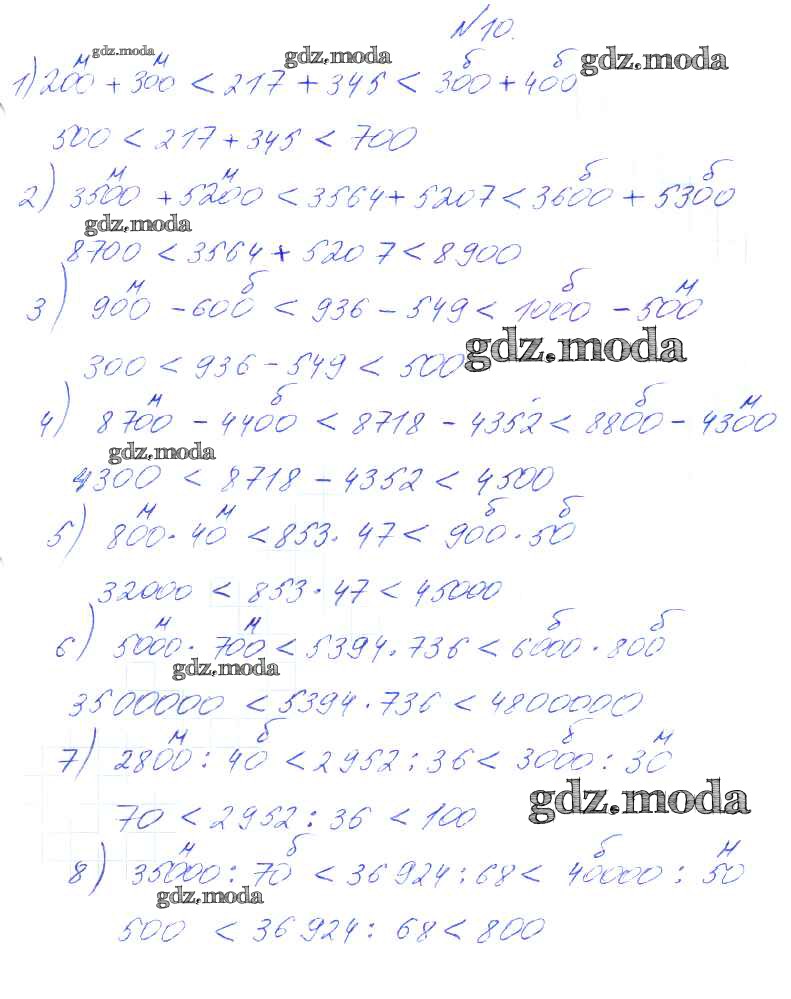 №10.
gdz.moda
gdz.moda
gdz.moda
м м б б
1) 200 + 300 < 217 + 345 < 300 + 400
500 < 217 + 345 < 700
м м б б
2) 3500 + 5200 < 3564 + 5207 < 3600 + 5300
gdz.moda
8700 < 3564 + 5207 < 8900
м б б м
3) 900 - 600 < 936 - 549 < 1000 - 500
gdz.moda
300 < 936 - 549 < 500
м б б м
4) 8700 - 4400 < 8718 - 4352 < 8800 - 4300
gdz.moda
4300 < 8718 - 4352 < 4500
м м б б
5) 800 · 40 < 853 · 47 < 900 · 50
32000 < 853 · 47 < 45000
м м б б
6) 5000 · 700 < 5394 · 736 < 6000 · 800
gdz.moda
3500000 < 5394 · 736 < 4800000
м б б м
7) 2800 : 40 < 2952 : 36 < 3000 : 30
gdz.moda
70 < 2952 : 36 < 100
м б б м
8) 35000 : 70 < 36924 : 68 < 40000 : 50
gdz.moda
500 < 36924 : 68 < 800